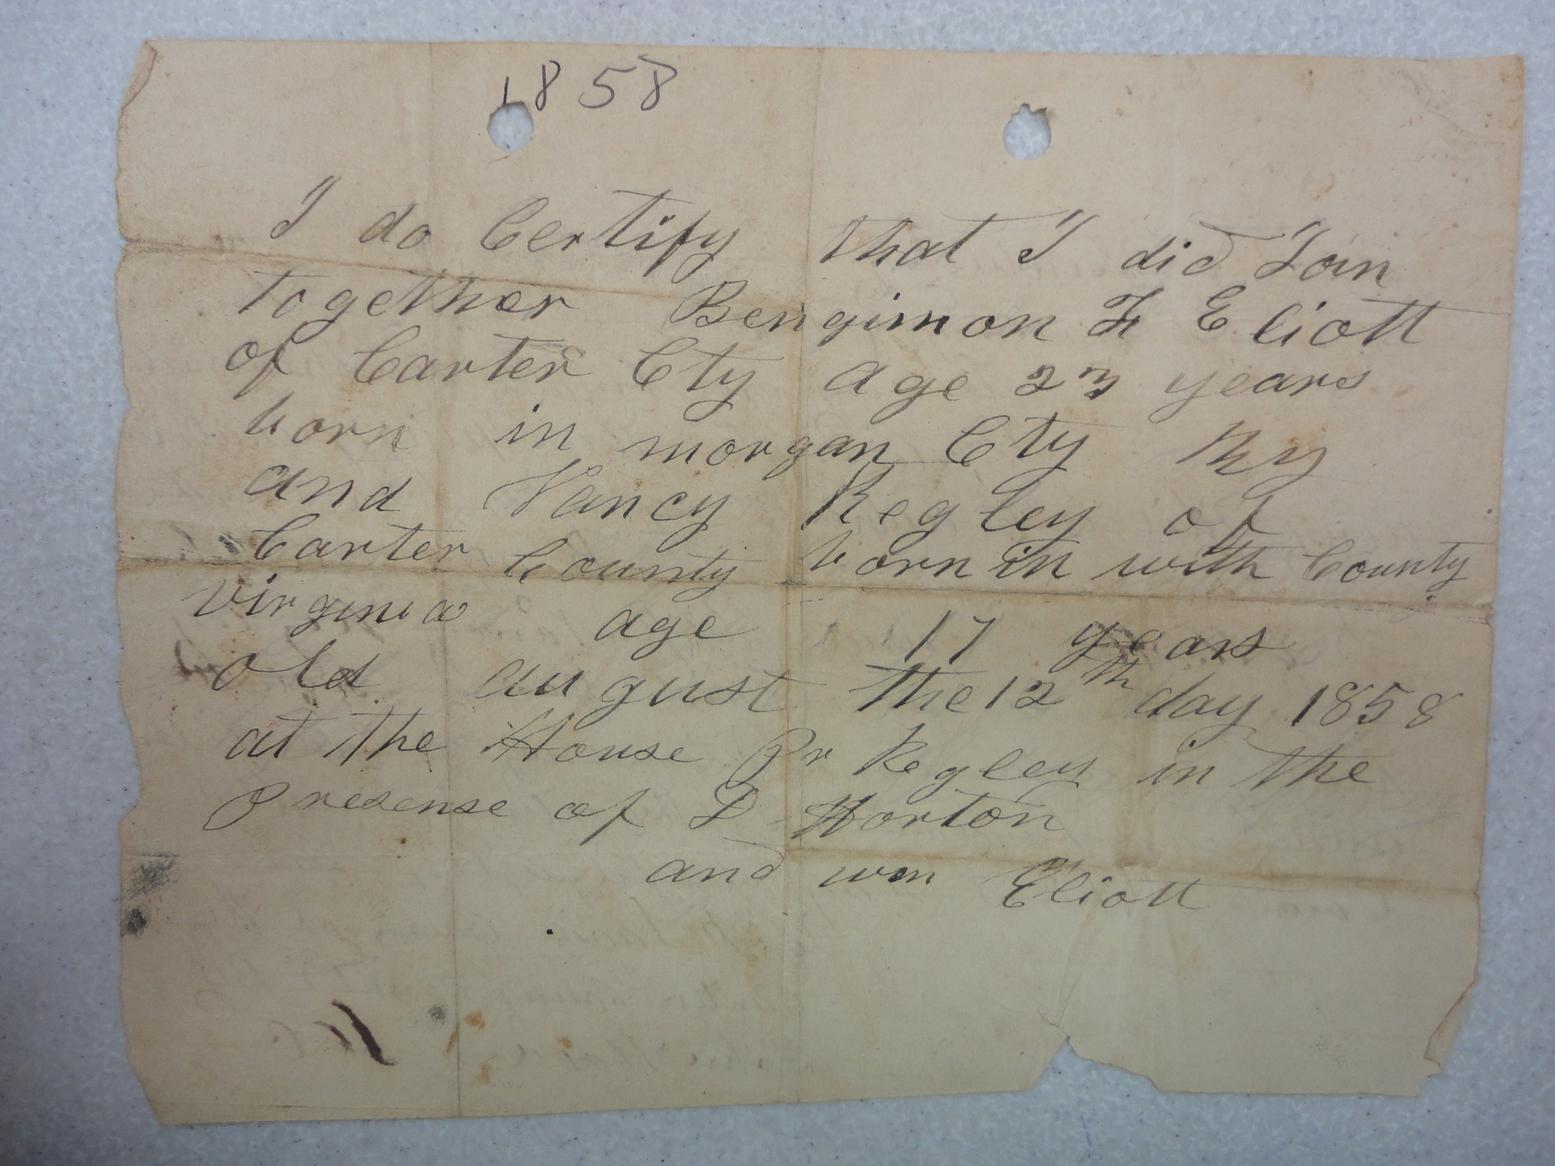 1858
I do Certify that I did Join
together Bengimon F Eliott
of Carter Cty age 23 years
born in morgan Cty Ky
and Nancy Regley of
Carter County born in with County
virginia age 17 years
old august the 12th day 1858
at the House Pr Regley in the
presense of D Horton
and wm Eliott